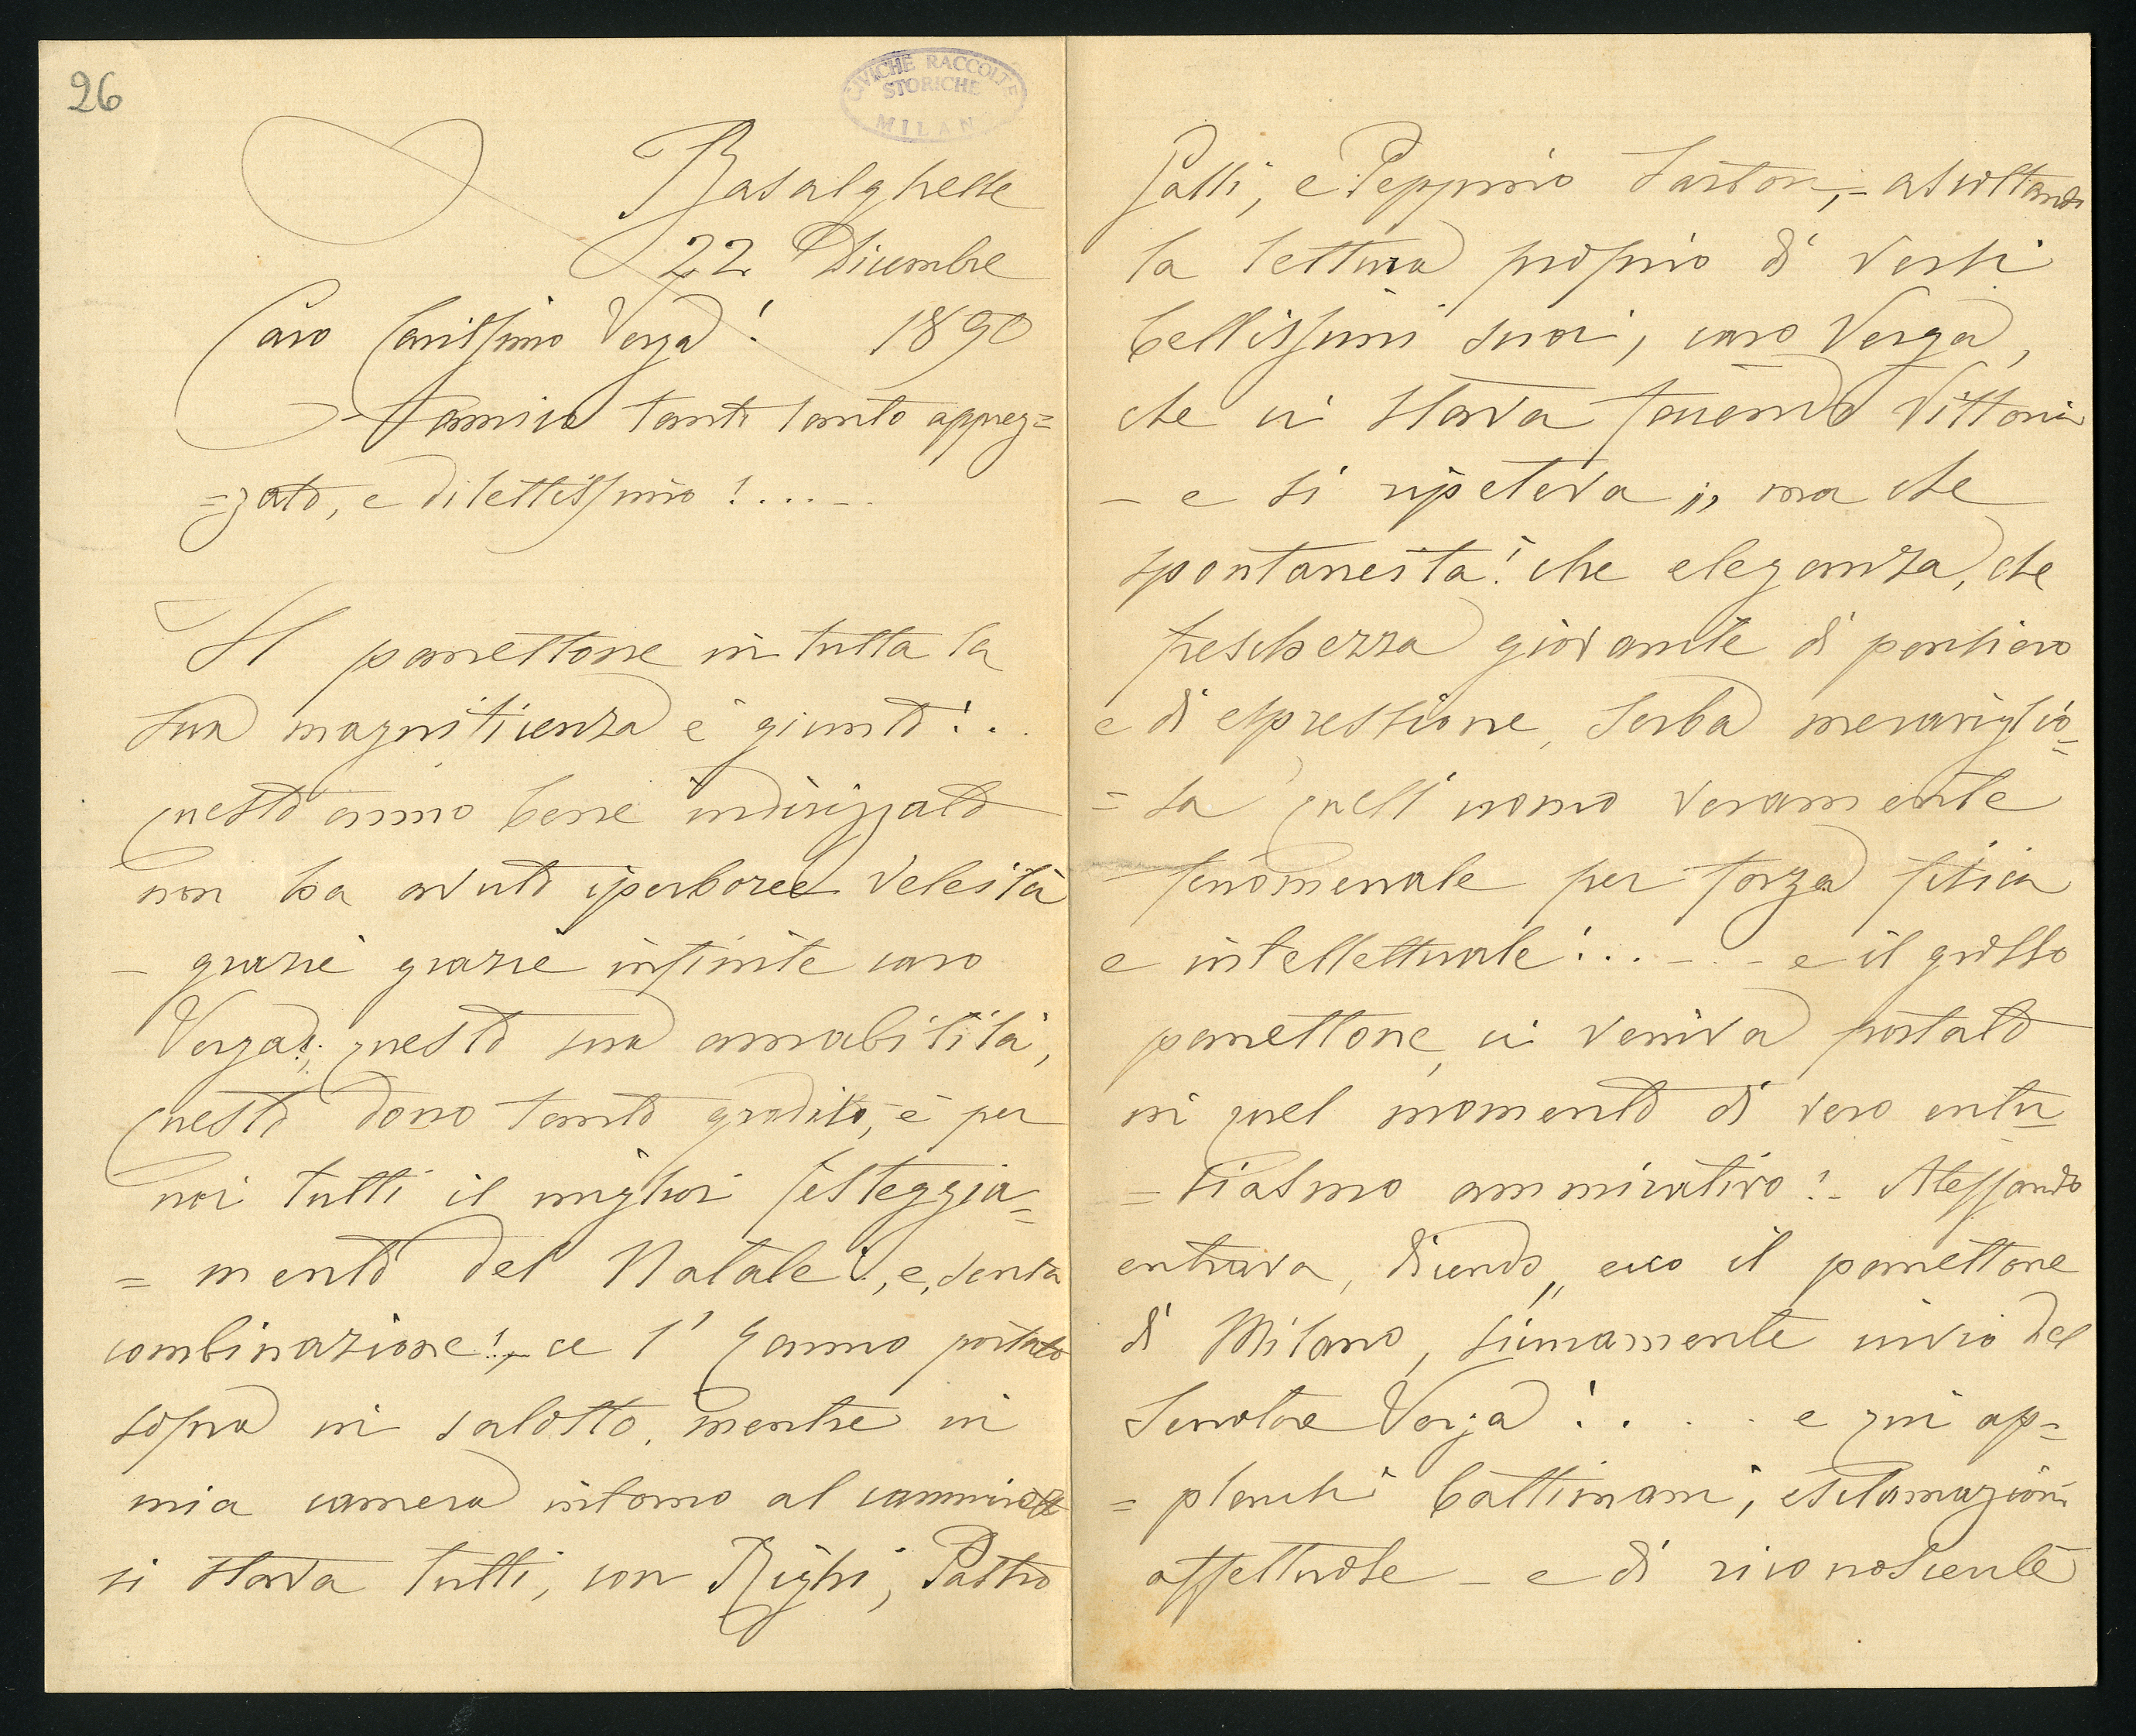 26
CIVICHE RACCOLTE
STORICHE
MILANO
Basalghelle
22 Dicembre
Caro Carissimo Verga! 1890
Amico tanto tanto apprez=
=zato, e dilettissimo!....
Il panettone in tutta la
sua magnificenza è giunto!..
questo anno bene indirizzato
non ha avuto iperboree veleità
- grazie grazie infinite caro
Verga!, questa sua amabilità,
questo dono tanto gradito, è per
noi tutti il miglior festeggia=
=mento del Natale!, e, senta
combinazione! ce l'hanno portato
sopra in salotto, mentre in
mia camera intorno al camino
si stava tutti, con Righi, Pastro
Galli, e Peppino Sartori,- ascoltando
la lettura proprio di versi
bellissimi suoi, caro Verga,
che ci stava facendo Vittorio
- e si ripeteva „ ma che
spontaneità! che eleganza, che
freschezza giovanile di pensiero
e di espressione, serba meraviglio=
=sa quell'uomo veramente
fenomenale per forza fisica
e intellettuale!..... e il grosso
panettone, ci veniva portato
in quel momento di vero entu=
=siasmo ammirativo!- Alessandro
entrava, dicendo „ ecco il panettone
di Milano, sicuramente invio del
Senatore Verga!.... e qui ap=
=plausi battimani, esclamazioni
affettuose - e di riconoscente